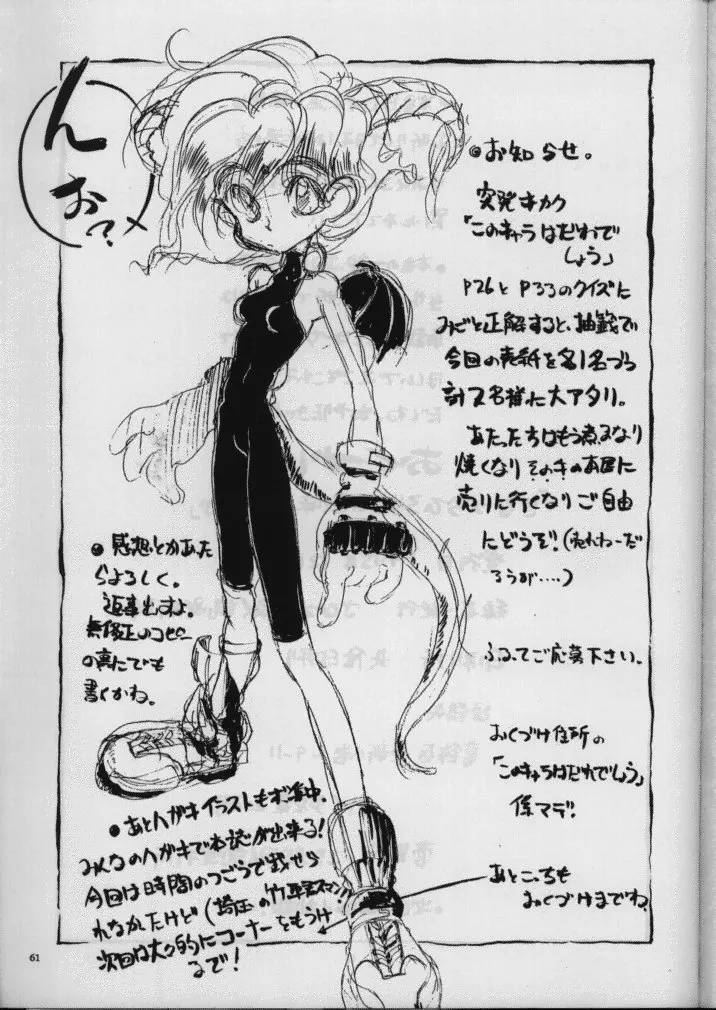 んお?
●お知らせ。
突発キカク
「このキャラはだれで
しょう」
P26とP33のクイズに
みごと正解すると、抽籤で
今回の表紙を各1名づつ
計2名様に大アタリ。
あたった方はもう煮るなり
焼くなりそのキのお店に
売りに行くなりご自由
にどうぞ!(売れねーだ
ろうが…‥)
ふるってご応募下さい。
おくづけ住所の
「このキャラはだれでしょう」
係マデ!
あとこっちも
おくづけまでね
●感想とかあた
らよろしく。
返事出すよ。
無修正のコピー
の裏にでも
書くかね。
●あとハガキイラストもボ集中。
みんなのハガキで本誌が出来る!
今回は時間のつごうで載せら
れなかたけど(埼玉の竹 スマン!!)
次回は大々的にコーナーをもうけ
るで!
61